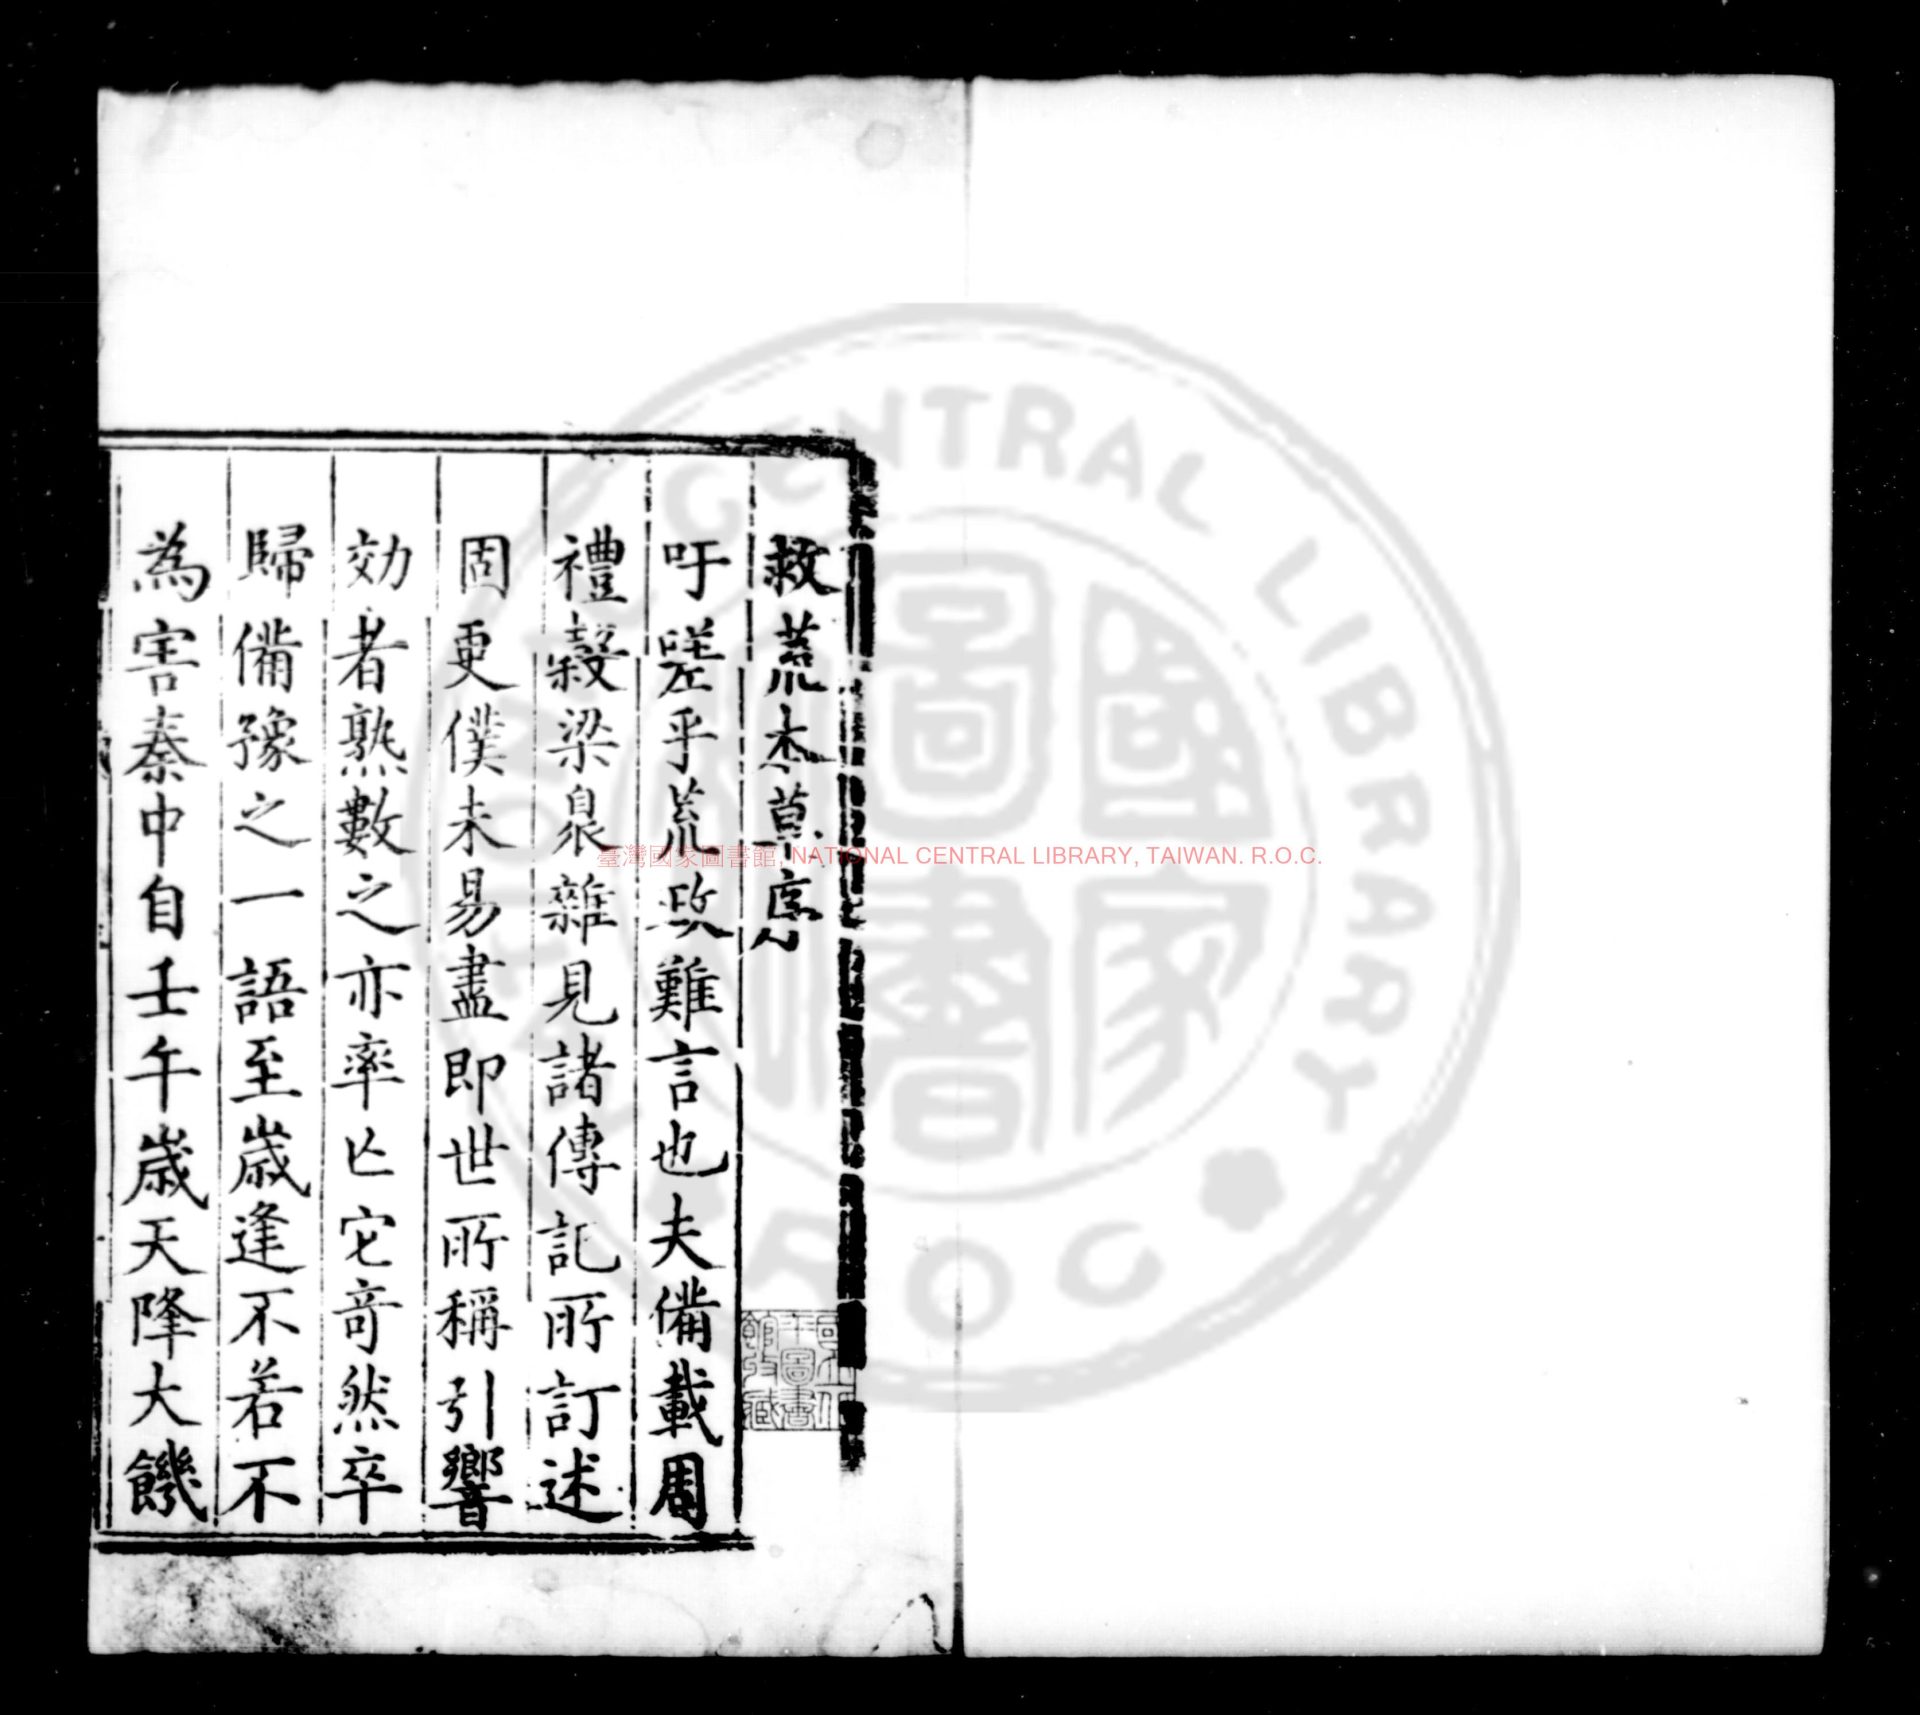 救荒本草序
吁嗟乎荒政難言也夫備載周
禮穀梁最雜見諸傳記所訂述
固更僕未易盡即世所稱引響
効者熟數之亦率亡它竒然卒
歸備豫之一語至歲逢不若不
為害秦中自壬午歲天降大饑
圖書
館收藏
臺灣國家圖書館, NATIONAL CENTRAL LIBRARY, TAIWAN. R.O.C.
NATIONAL CENTRAL LIBRARY
ROC
國家圖書